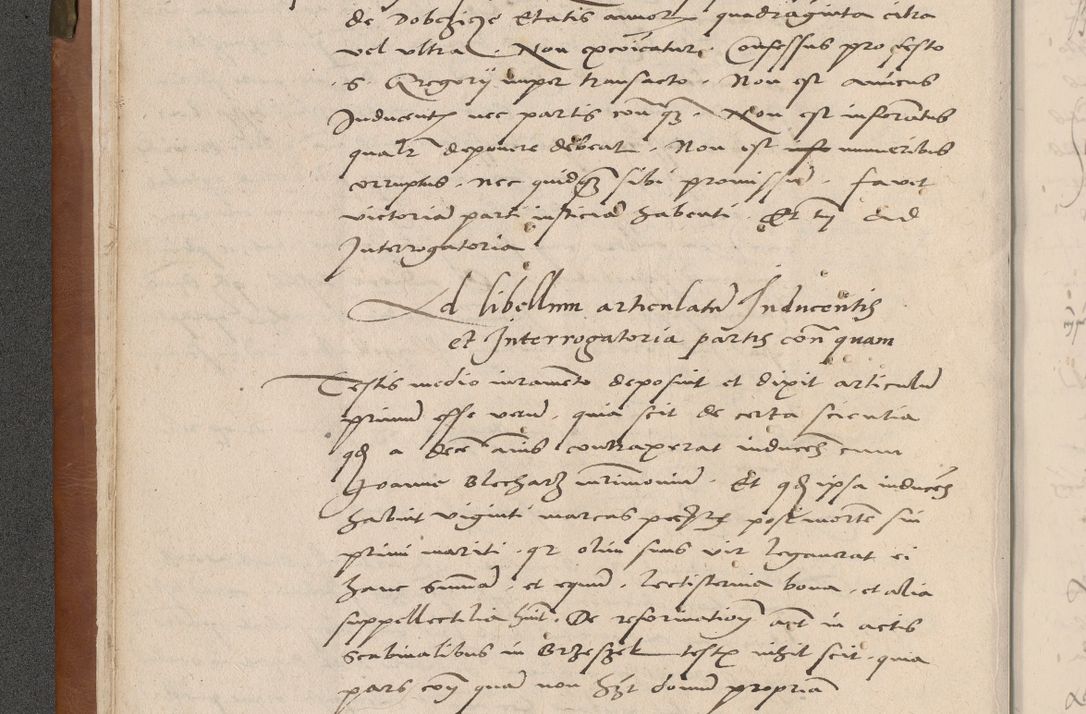 de Dobczicze etatis annorum quadraginta citra
vel ultra. Non excommunicatus. Confessus pro festo
S. Gregorij nuper transacto. Non est amicus
Inducentis nec partis contra quam. Non est informatus
qualiter deponere debeat. Non est inf muneribus
corruptus. nec quidquam sibi promissum. favet
victoriam parti iusticiam habenti. Et tantum ad
Interrogatoria
Ad libellum articulatum Inducentis
et Interrogatoria partis contra quam
Testis medio iuramento deposuit et dixit articulum
primum esse verum. quia scit de certa scientia
quod a decem annis contraxerat inducens cum
Joanne Blecharz matrimonium. Et quod ipsa inducens
habuit viginti marcas post mortem sui
primi mariti. quia olim suus vir legaverat ei
hanc summam. et equum. lectisternia bona. et alia
suppellectilia habuit. De reformatione autem in actis
scabinalibus in Brzeszek testis nihil scit. quia
pars contra quam non habet domum propriam